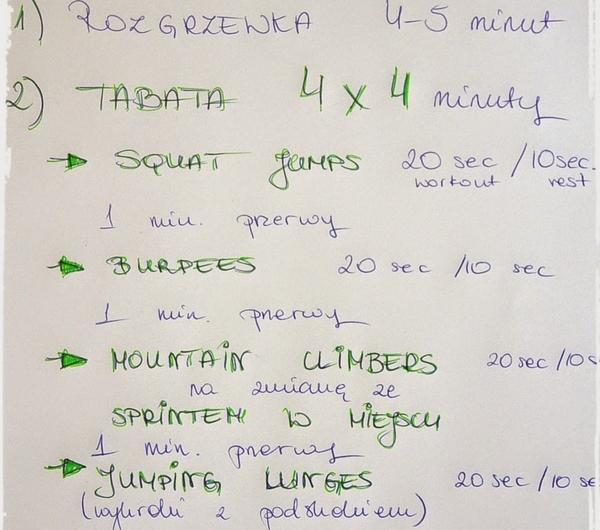 1) ROZGRZEWKA 4-5 minut
2) TABATA 4 x 4 minuty
SQUAT JUMPS 20 sec / 10 sec.
workout rest
1 min. przerwy
BURPEES 20 sec / 10 sec
1 min. przerwy
MOUNTAIN CLIMBERS 20 sec / 10 s
na zmianę ze
SPRINTEM W MIEJSCU
1 min. przerwy
JUMPING LUNGES 20 sec / 10 se
(wykroki z podskokiem)